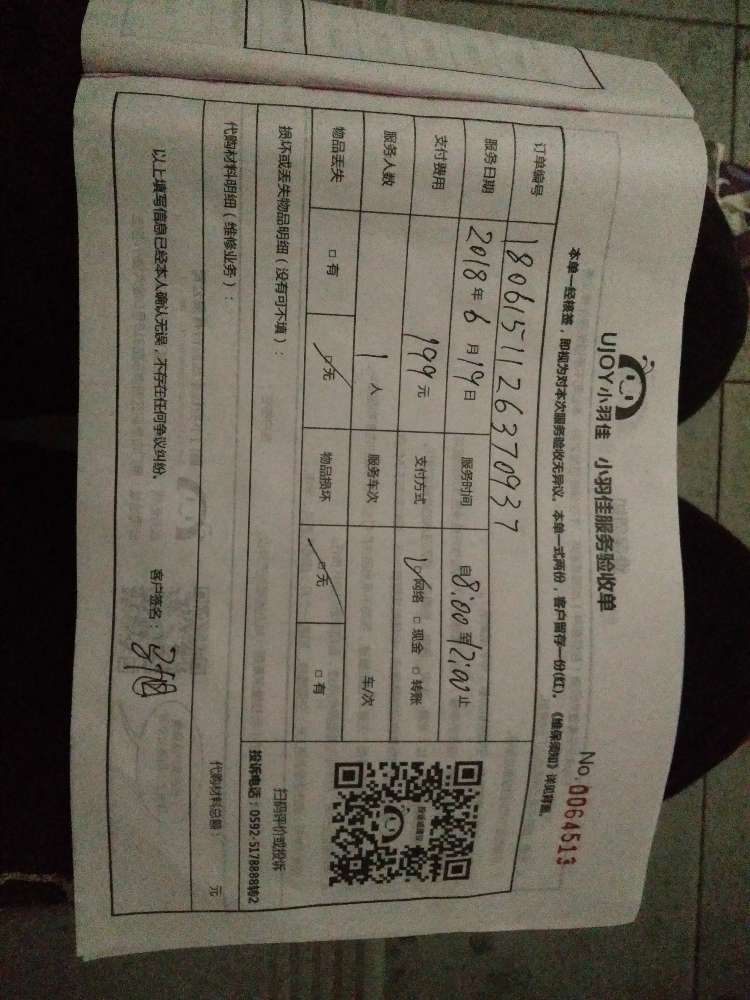 UJOY小羽佳 小羽佳服务验收单
No. 0064513
本单一经核签，即视为对本次服务验收无异议。本单一式两份，客户留存一份(红)。《维保须知》详见背面。
订单编号 1806151126370937
服务日期 2018年6月19日 服务时间 自8:00至12:00止
支付费用 199元 支付方式 网络 □现金 □转账
服务人数 1人 服务车次 车/次
物品丢失 □有 □无 物品损坏 □无 □有
损坏或丢失物品明细（没有可不填）：
扫码评价或投诉
投诉电话：0592-5178888转2
代购材料明细（维修业务）：
代购材料总额： 元
以上填写信息已经本人确认无误，不存在任何争议纠纷。 客户签名：